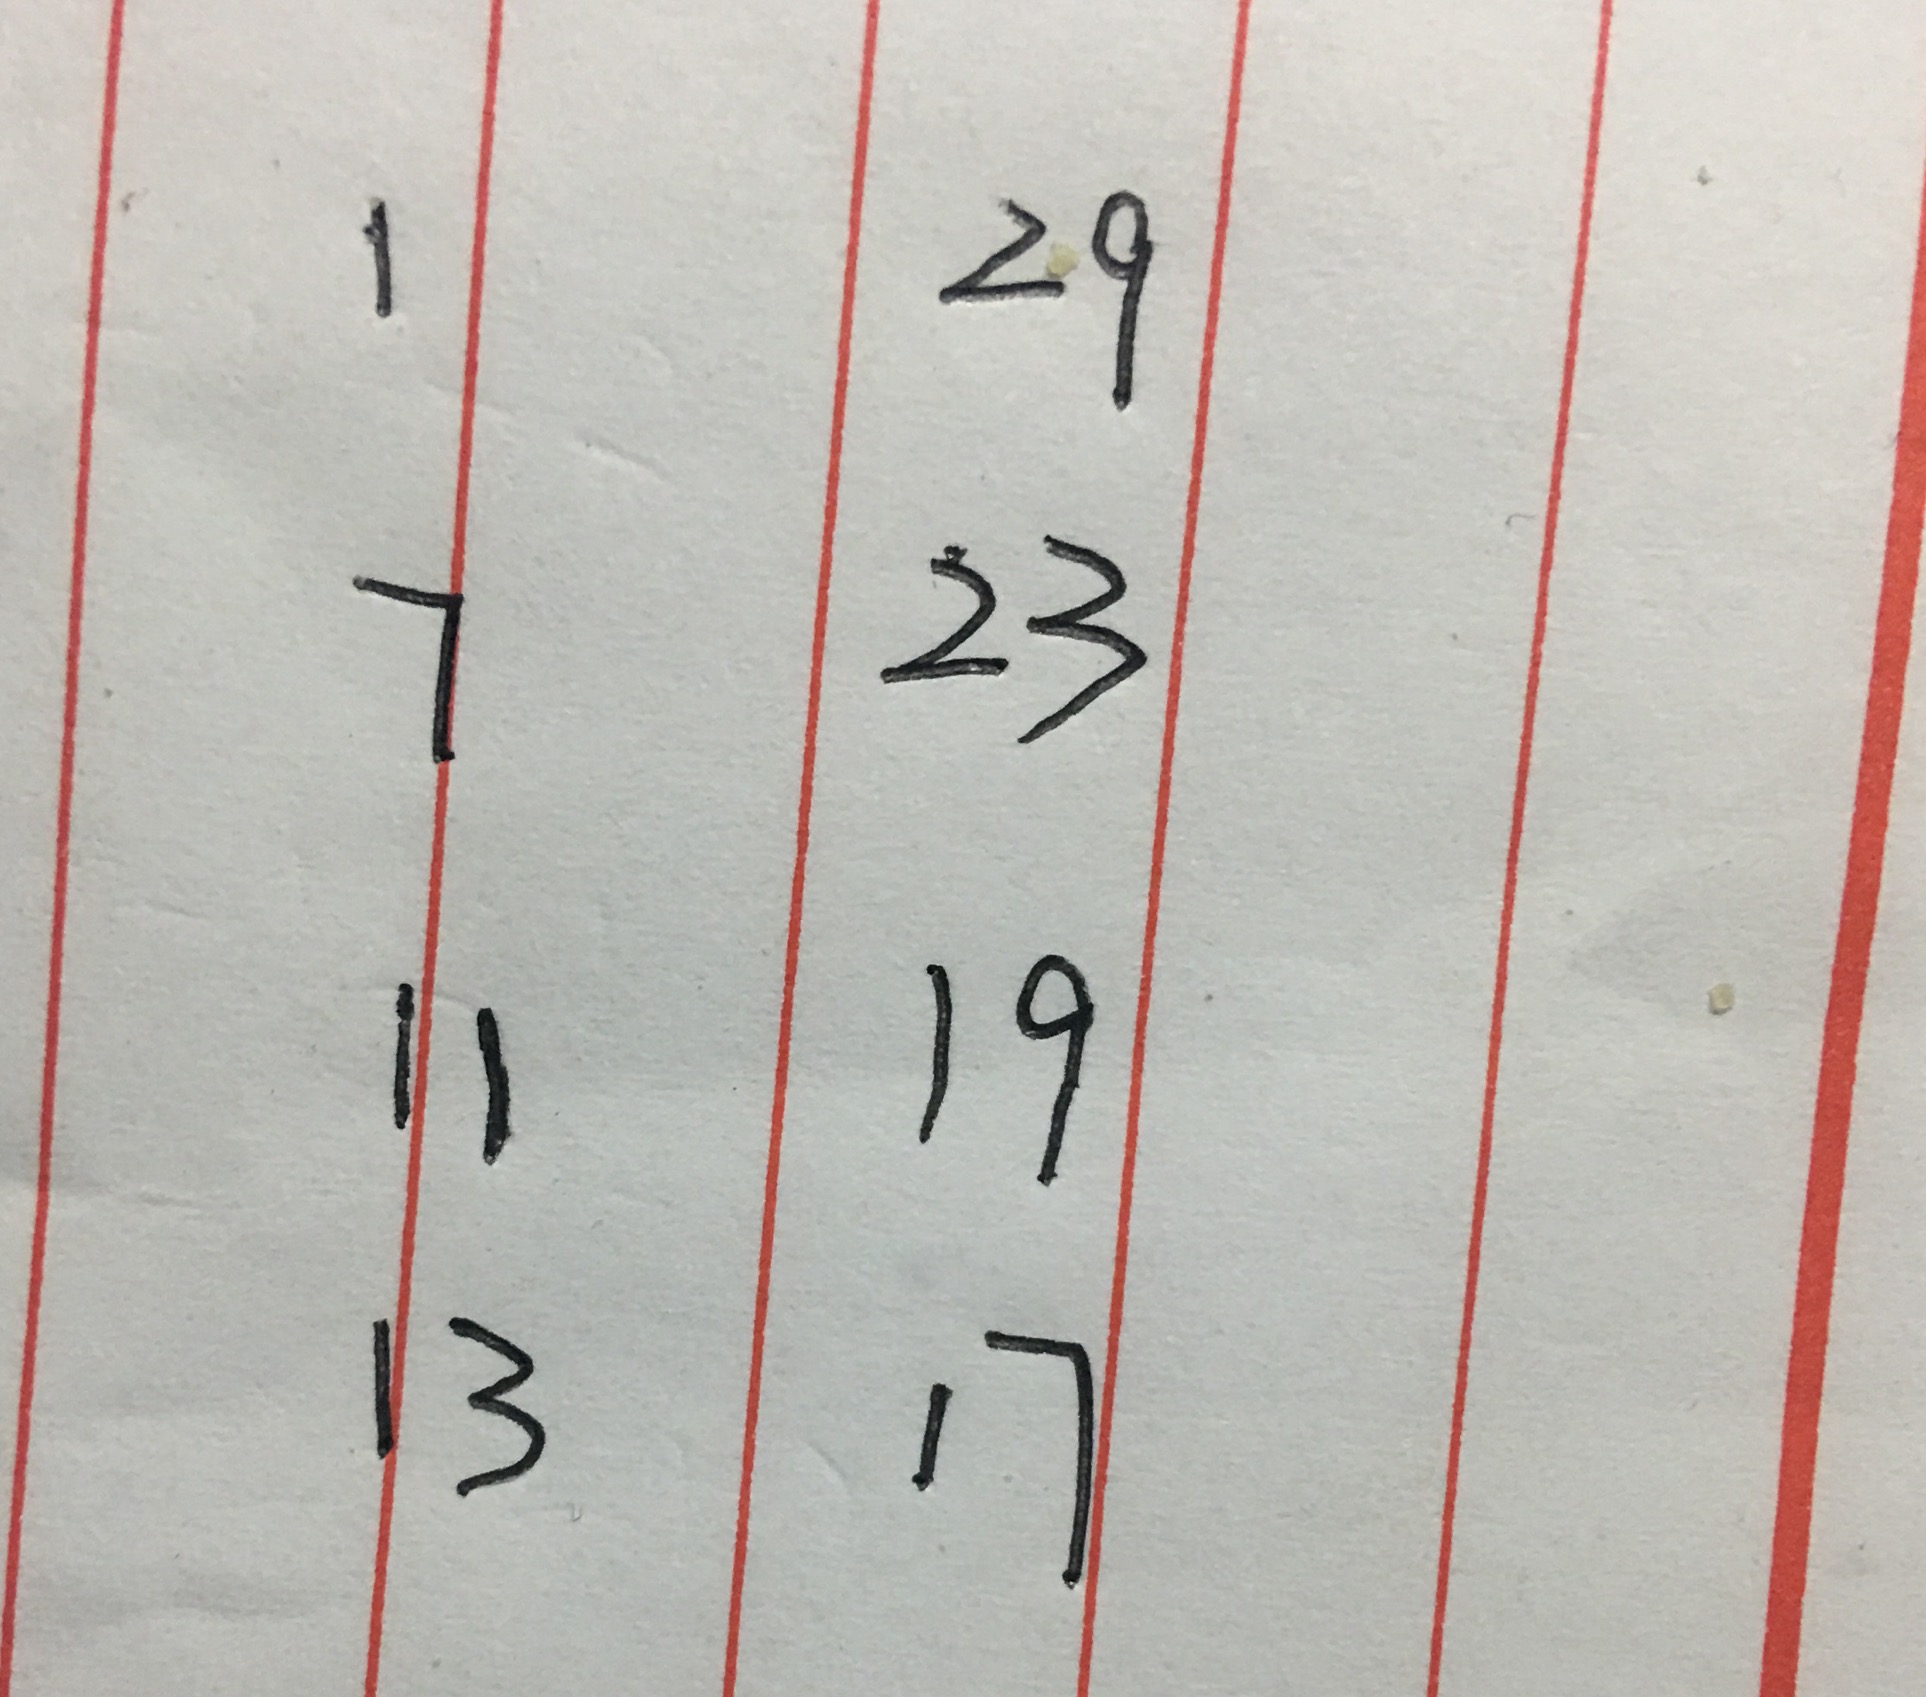 1 29
7 23
11 19
13 17